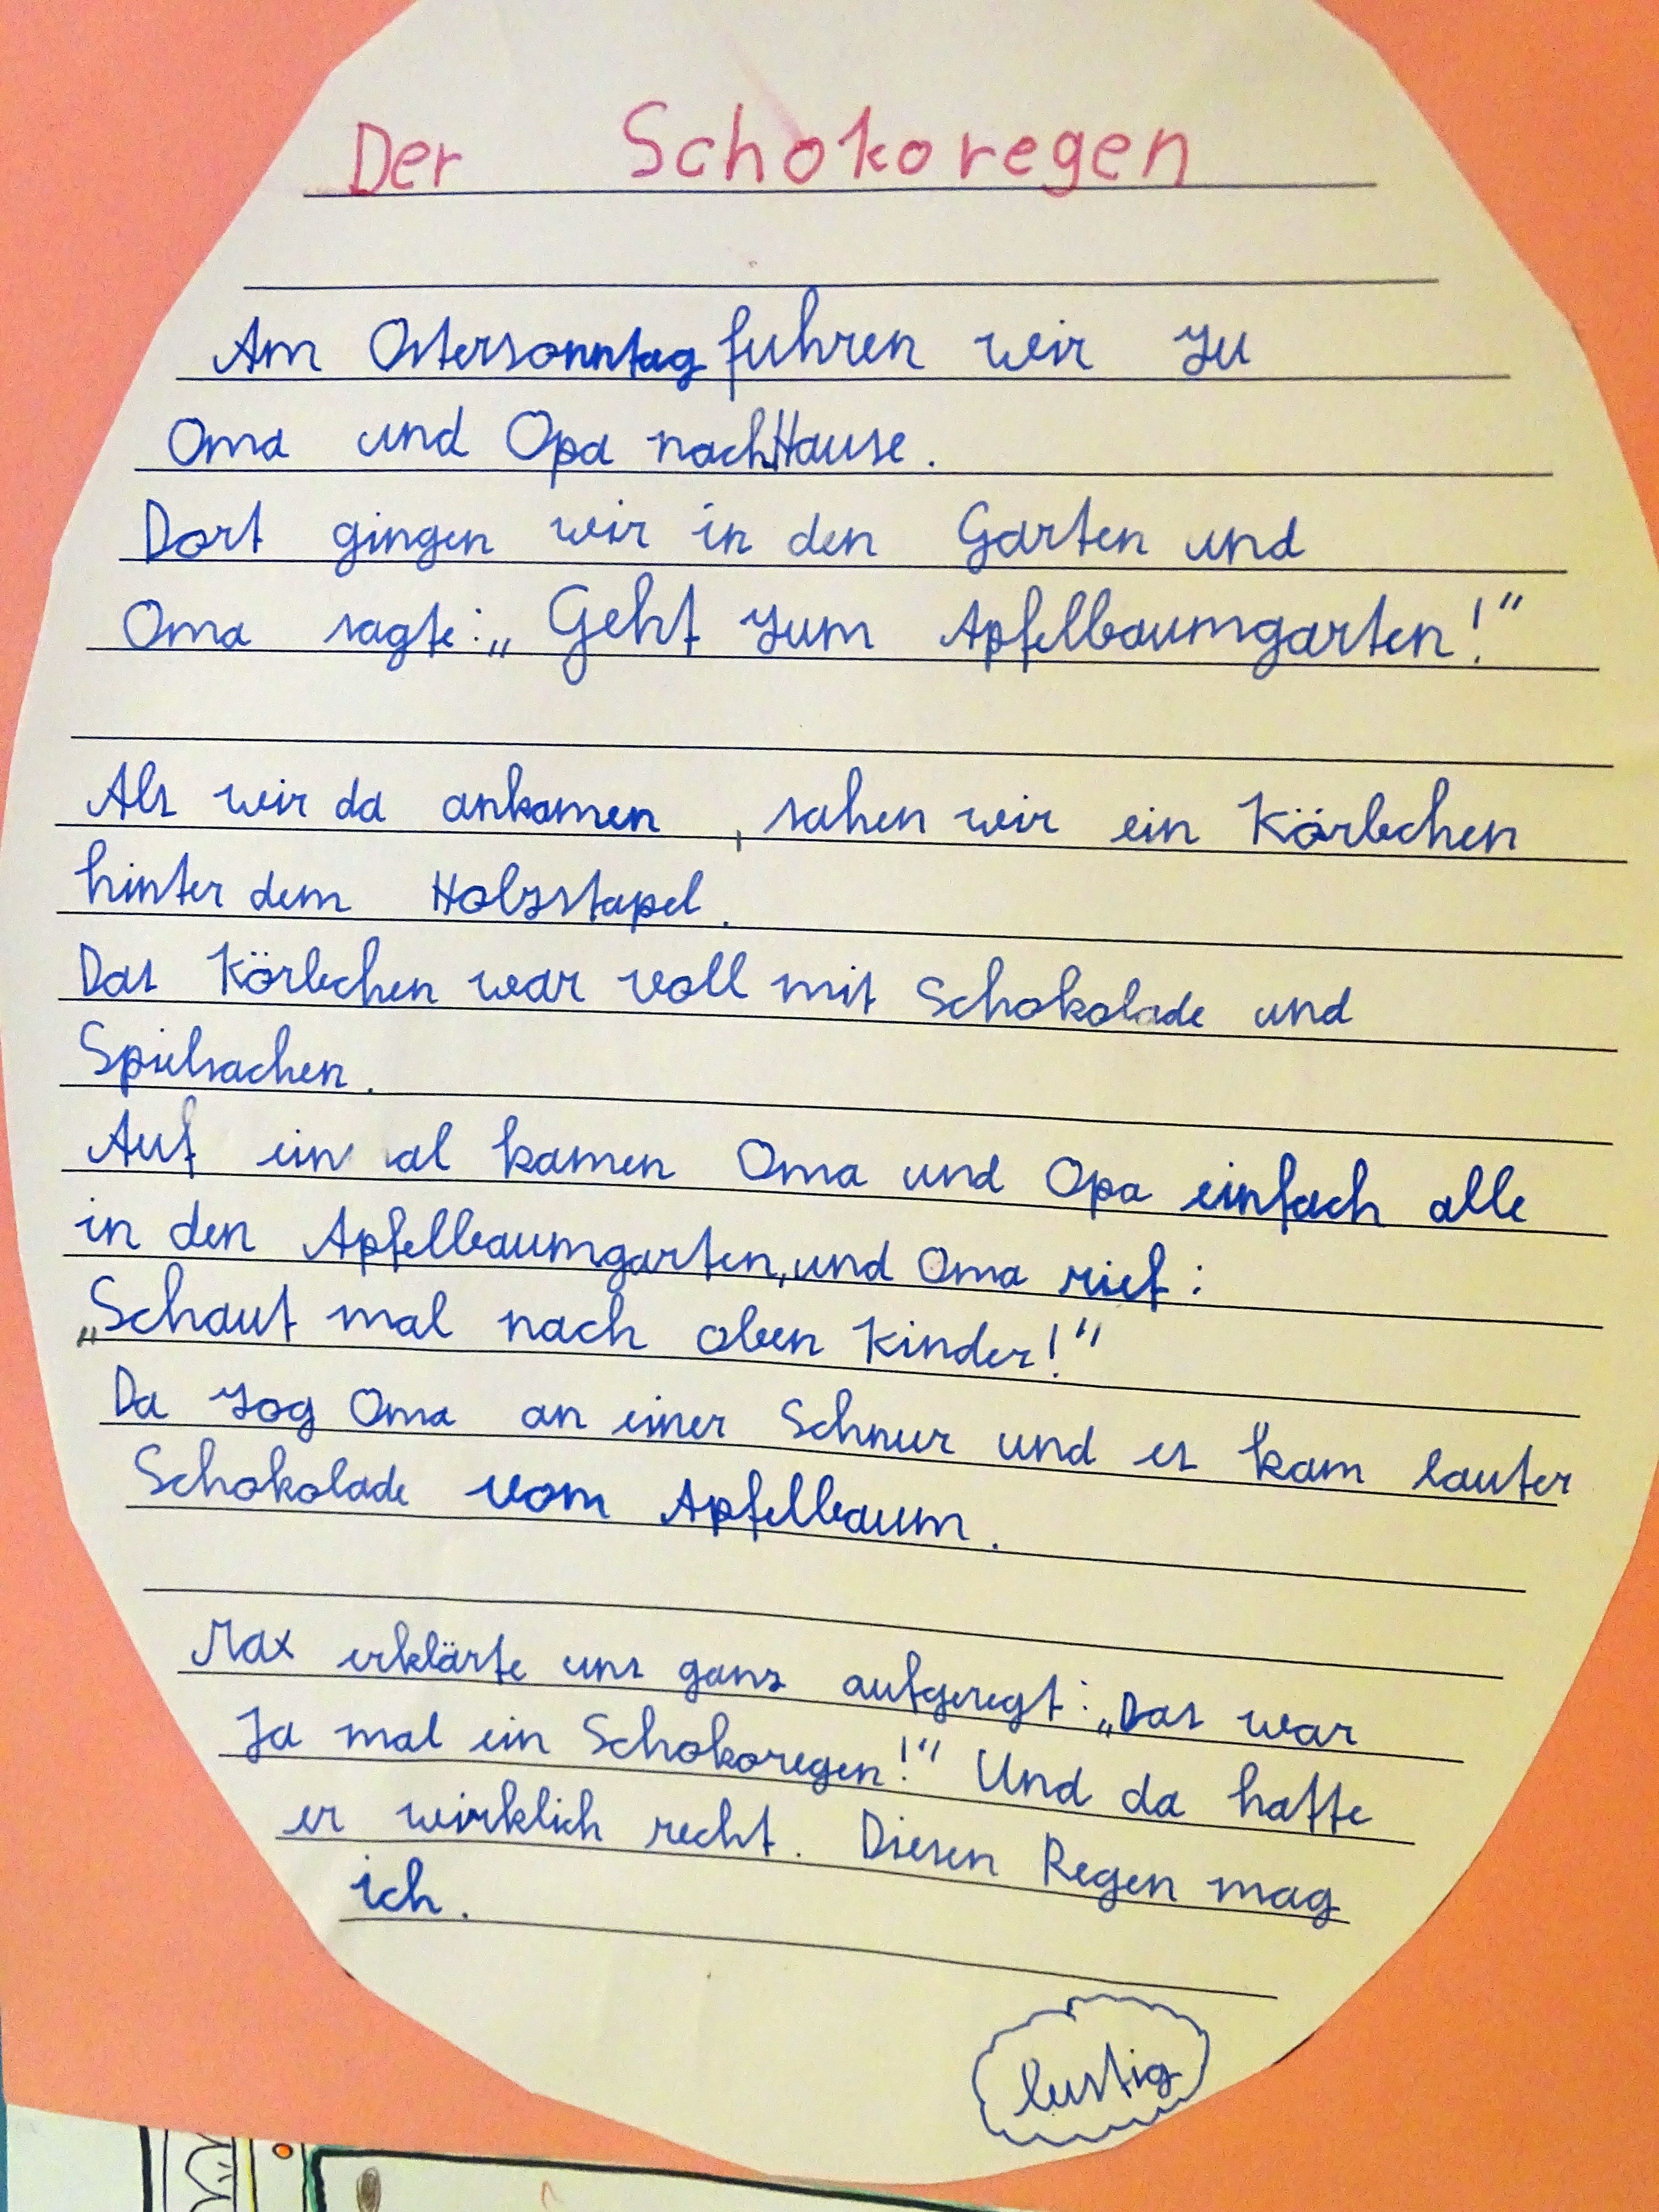 Der Schokoregen
Am Ostersonntag fuhren wir zu
Oma und Opa nach Hause.
Dort gingen wir in den Garten und
Oma sagte: „Geht zum Apfelbaumgarten!“
Als wir da ankamen, sahen wir ein Körbchen
hinter dem Holzstapel.
Das Körbchen war voll mit Schokolade und
Spielsachen.
Auf ein al kamen Oma und Opa einfach alle
in den Apfelbaumgarten, und Oma rief:
„Schaut mal nach oben Kinder!“
Da zog Oma an einer Schnur und es kam lauter
Schokolade vom Apfelbaum.
Max erklärte uns ganz aufgeregt: „Das war
Ja mal ein Schokoregen!“ Und da hatte
er wirklich recht. Diesen Regen mag
ich.
lustig